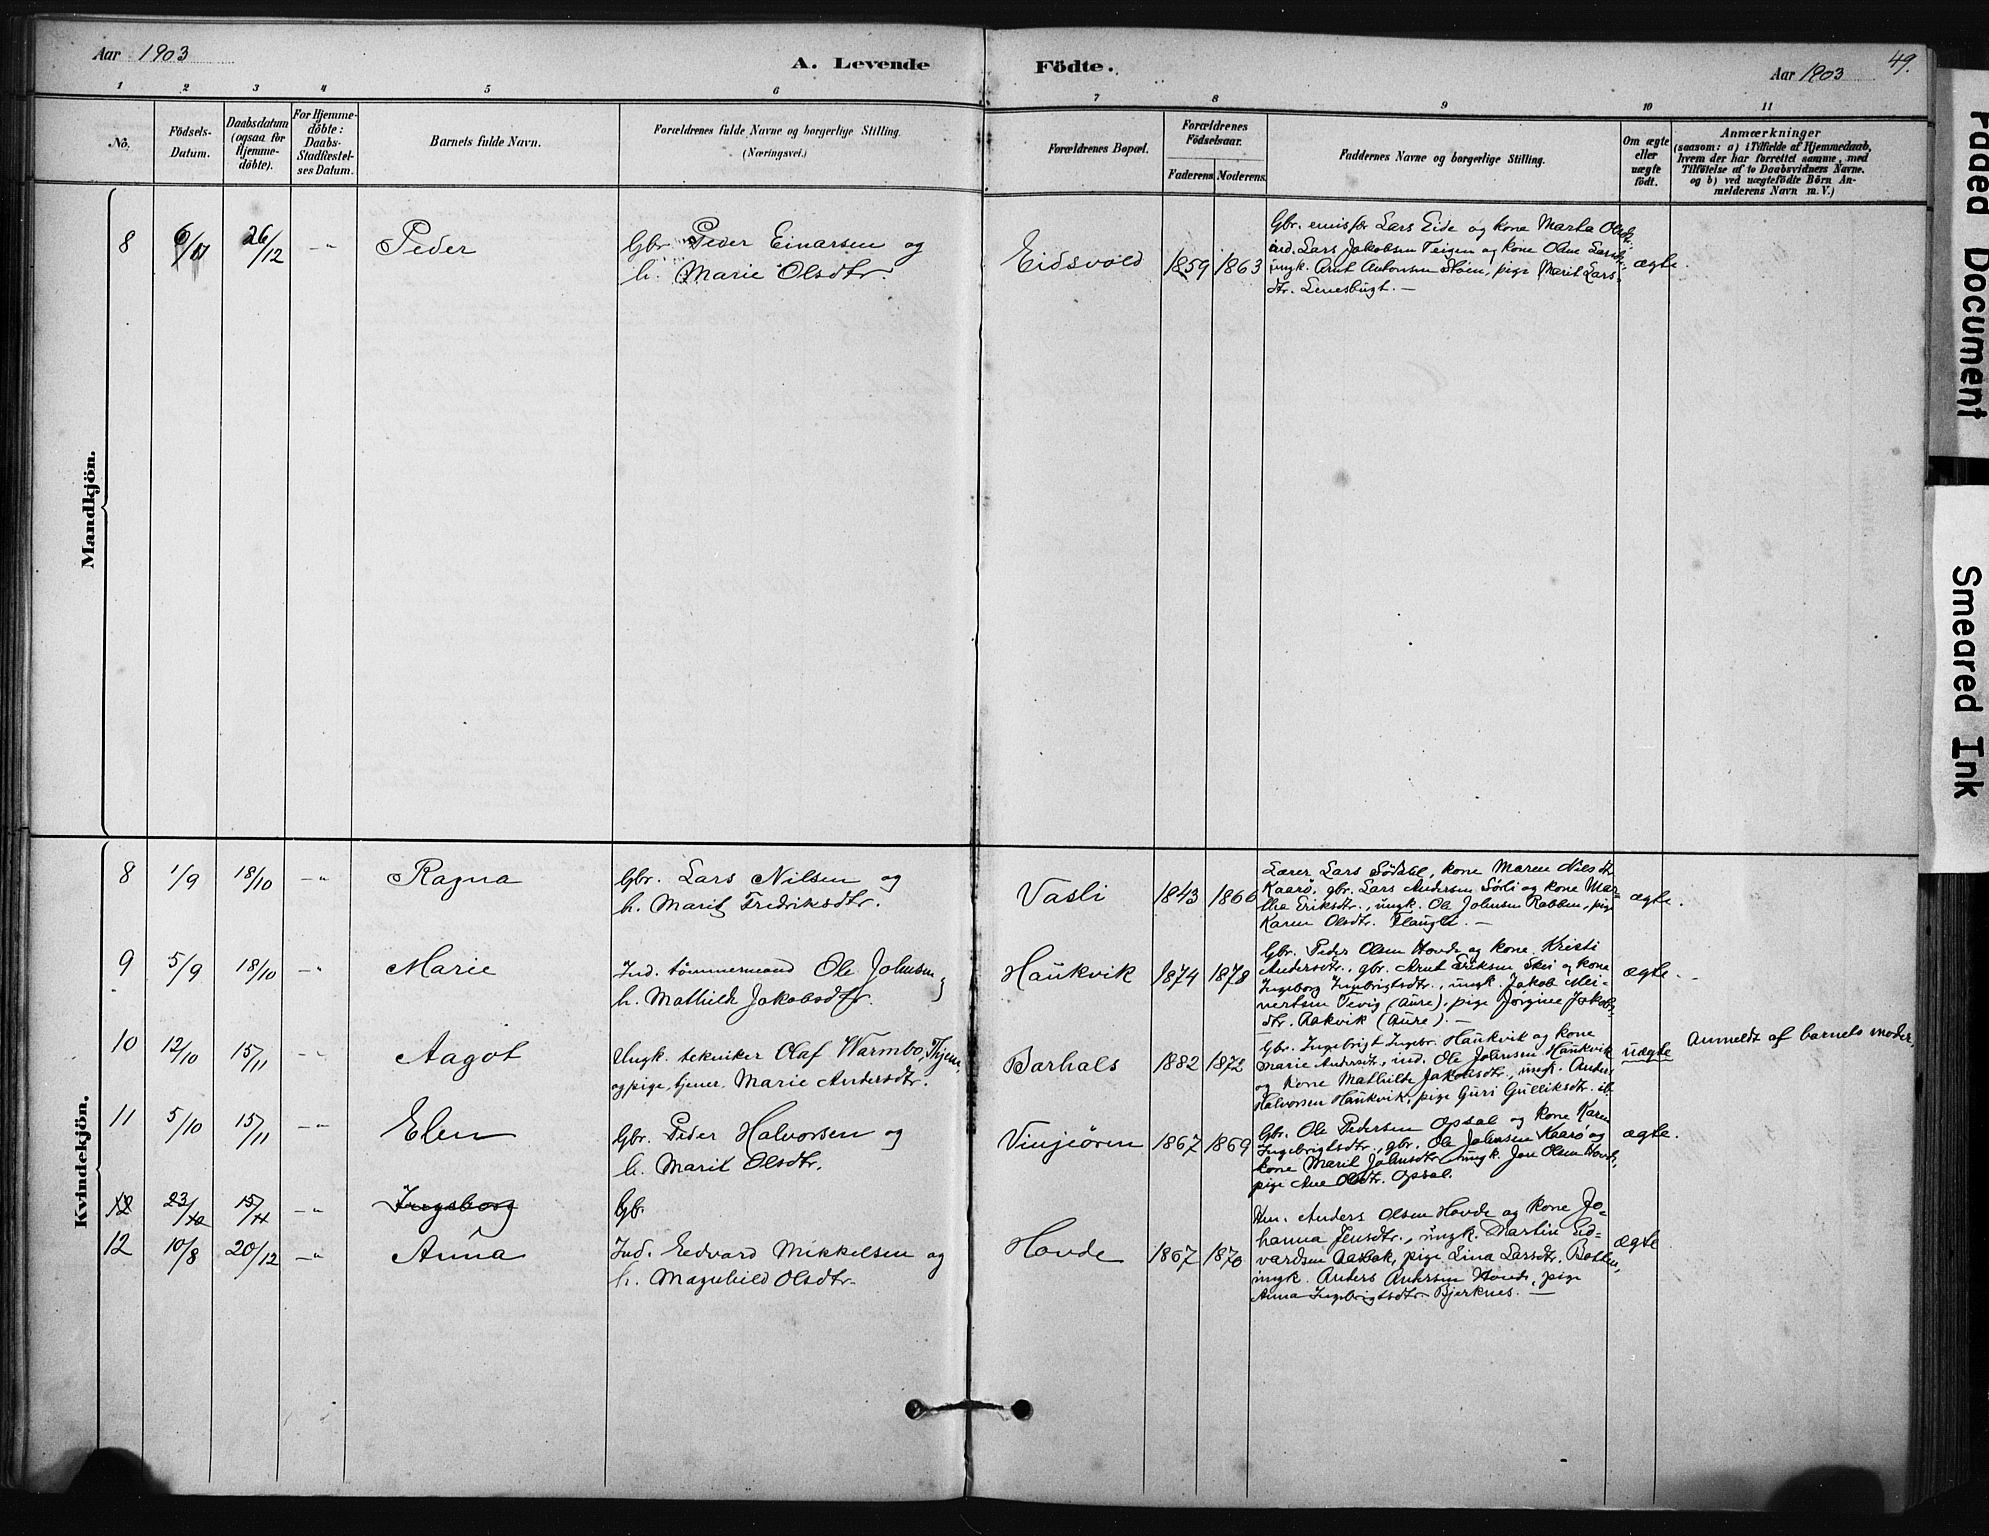 Aar 1903
A. Levende Födte.
Aar 1903
49.
1 2 3 4 5 6 7 8 9 10 11
No.
Födsels-Datum.
Daabsdatum (ogsaa for Hjemme-döbte).
For Hjemme-döbte: Daabs-Stadfæstel-ses Datum.
Barnets fulde Navn.
Forældrenes fulde Navne og borgerlige Stilling. (Næringsvei.)
Forældrenes Bopæl.
Forældrenes Födselsaar.
Faderens. Moderens.
Faddernes Navne og borgerlige Stilling.
Om ægte eller uægte födt.
Anmærkninger
(saasom: a) i Tilfælde af Hjemmedaab,
hvem der har forrettet samme, med
Tilföielse af to Daabsvidners Navne.
og b) ved uægtefödte Börn An-
melderens Navn m. V.)
Mandkjön.
8 6/11 26/12 -"- Peder
Gbr. Peder Einarsen og
h. Marie Olsdtr.
Eidsvold 1859 1863
Gbr. emisfr Lars Eide og kone Marta Olsdt.
ind. Lars Jakobsen Teigen og kone Oline Larsdtr.
ungk. Arnt Antonsen Höen, pige Marit Lars-
dtr. Lenesbugt. —
ægte.
Kvindekjön.
8 1/9 18/10 -"- Ragna
Gbr. Lars Nilsen og
h. Marit Fredriksdtr.
Vasli 1843 1866
Lærer Lars Södahl, kone Maren Nilsdt.
Kaarö, gbr. Lars Andersen Sörli og kone Mar-
tha Eriksdtr., ungk. Ole Johnsen Rabben, pige
Karen Olsdtr. Flaugte. —
ægte.
9 5/9 18/10 -"- Marie
Ind. tömmermand Ole Johnsen og
h. Mathilde Jakobsdtr.
Haukvik 1874 1878
Gbr. Peder Olsen Hovde og kone Kristi
Andersdtr., gbr. Arnt Eriksen Skei og kone
Ingeborg Ingebrigtsdtr., ungk. Jakob Mei-
nertsen Tevig (Aure), pige Jörgine Jakobs-
dtr. Aakvik (Aure). —
ægte.
10 12/10 15/11 -"- Aagot
Ungk. tekniker Olaf Warmbo, Thjem,
og pige, tjener. Marie Andersdtr.
Barhals 1882 1872
Gbr. Ingebrigt Ingebr. Haukvik og kone
Marie Andersdtr., ind. Ole Johnsen Haukvik
og kone Mathilde Jakobsdtr., ungk. Anders
Halvorsen Haukvik, pige Guri Gulliksdtr. ib.
uægte
Anmeldt af barnets moder.
11 5/10 15/11 -"- Elen
Gbr. Peder Halvorsen og
h. Marit Olsdtr.
Vinjeören 1867 1869
Gbr. Ole Pedersen Opsal og kone Karen
Ingebrigtsdtr., gbr. Ole Johnsen Kaarö og
kone Marit Johnsdtr. ungk. Jon Olsen Hovde,
pige Ane Olsdtr. Opsal.
ægte.
12 23/10 15/11 -"- Ingeborg
Gb.
12 10/8 20/12 -"- Anna
Ind. Edvard Mikkelsen og
h. Magnhild Olsdtr.
Hovde 1867 1870
Km. Anders Olsen Hovde og kone Jo-
hanna Jensdtr., ungk. Martin Ed-
vardsen Aasbak, pige Lina Larsdtr. Botten,
ungk. Anders Andersen Hovde, pige
Anna Ingebrigtsdtr. Bjerknes. —
ægte
Faded Document
Smeared Ink